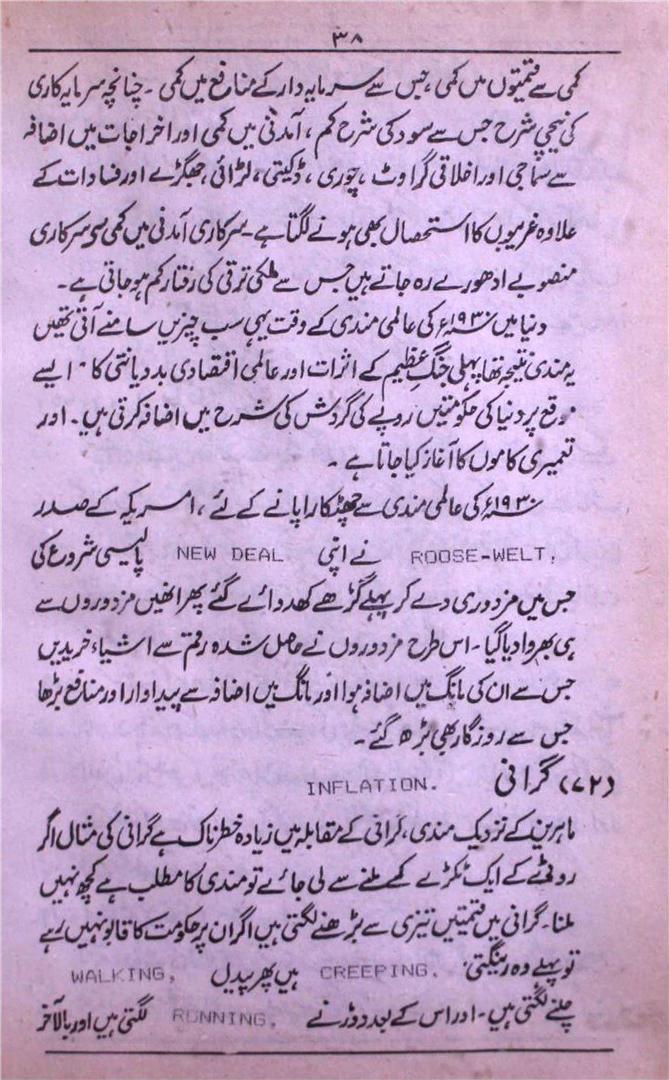 ۳۸
کمی سے قیمتوں میں کمی، جس سے سرمایہ دار کے منافع میں کمی ۔ چنانچہ سرمایہ کاری
کی نیچی شرح جس سے سود کی شرح کم، آمدنی میں کمی اور اخراجات میں اضافہ
سے سماجی اور اخلاقی گراوٹ، چوری، ڈکیتی، لڑائی، جھگڑے اور فسادات کے
علاوہ غریبوں کا استحصال بھی ہونے لگتا ہے۔ سرکاری آمدنی میں کمی سے سرکاری
منصوبے ادھورے رہ جاتے ہیں جس سے ملکی ترقی کی رفتار کم ہو جاتی ہے۔
دنیا میں ۱۹۳۰ء کی عالمی مندی کے وقت یہی سب چیزیں سامنے آتی تھیں
یہ مندی نتیجہ تھا، پہلی جنگ عظیم کے اثرات اور عالمی اقتصادی بددیانتی کا۔ ایسے
موقع پر دنیا کی حکومتیں روپے کی گردش کی شرح میں اضافہ کرتی ہیں۔ اور
تعمیری کاموں کا آغاز کیا جاتا ہے ۔
۱۹۳۰ء کی عالمی مندی سے چھٹکارا پانے کے لئے، امریکہ کے صدر
ROOSE-WELT. نے اپنی NEW DEAL پالیسی شروع کی
جس میں مزدوری دے کر پہلے گڑھے کھدوائے گئے پھر انھیں مزدوروں سے
ہی بھروا دیا گیا۔ اس طرح مزدوروں نے حاصل شدہ رقم سے اشیاء خریدیں
جس سے ان کی مانگ میں اضافہ ہوا اور مانگ میں اضافہ سے پیداوار اور منافع بڑھا
جس سے روزگار بھی بڑھ گئے۔
(۷۲) گرانی INFLATION.
ماہرین کے نزدیک مندی، گرانی کے مقابلہ میں زیادہ خطرناک ہے گرانی کی مثال اگر
روٹی کے ایک ٹکڑے کے ملنے سے لی جائے تو مندی کا مطلب ہے کچھ نہیں
ملنا۔ گرانی میں قیمتیں تیزی سے بڑھنے لگتی ہیں اگر ان پر حکومت کا قابو نہیں رہے
تو پہلے وہ رینگتی CREEPING. ہیں پھر پیدل WALKING.
چلنے لگتی ہیں۔ اور اس کے بعد دوڑنے RUNNING. لگتی ہیں اور بالآخر